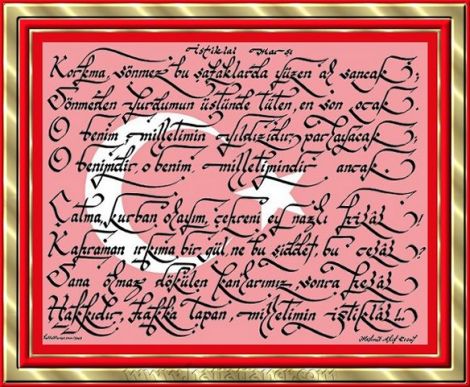 istiklal marşı
Korkma, sönmez bu şafaklarda yüzen al sancak;
Sönmeden yurdumun üstünde tüten, en son ocak.
O benim milletimin yıldızıdır parlayacak;
O benimdir, o benim milletimindir ancak.
Çatma, kurban olayım, çehreni ey nazlı hilâl!
Kahraman ırkıma bir gül, ne bu şiddet, bu celâl?
Sana olmaz dökülen kanlarımız sonra helâl
Hakkıdır, Hakka tapan, milletimin istiklâl!..
Mehmet Akif Ersoy